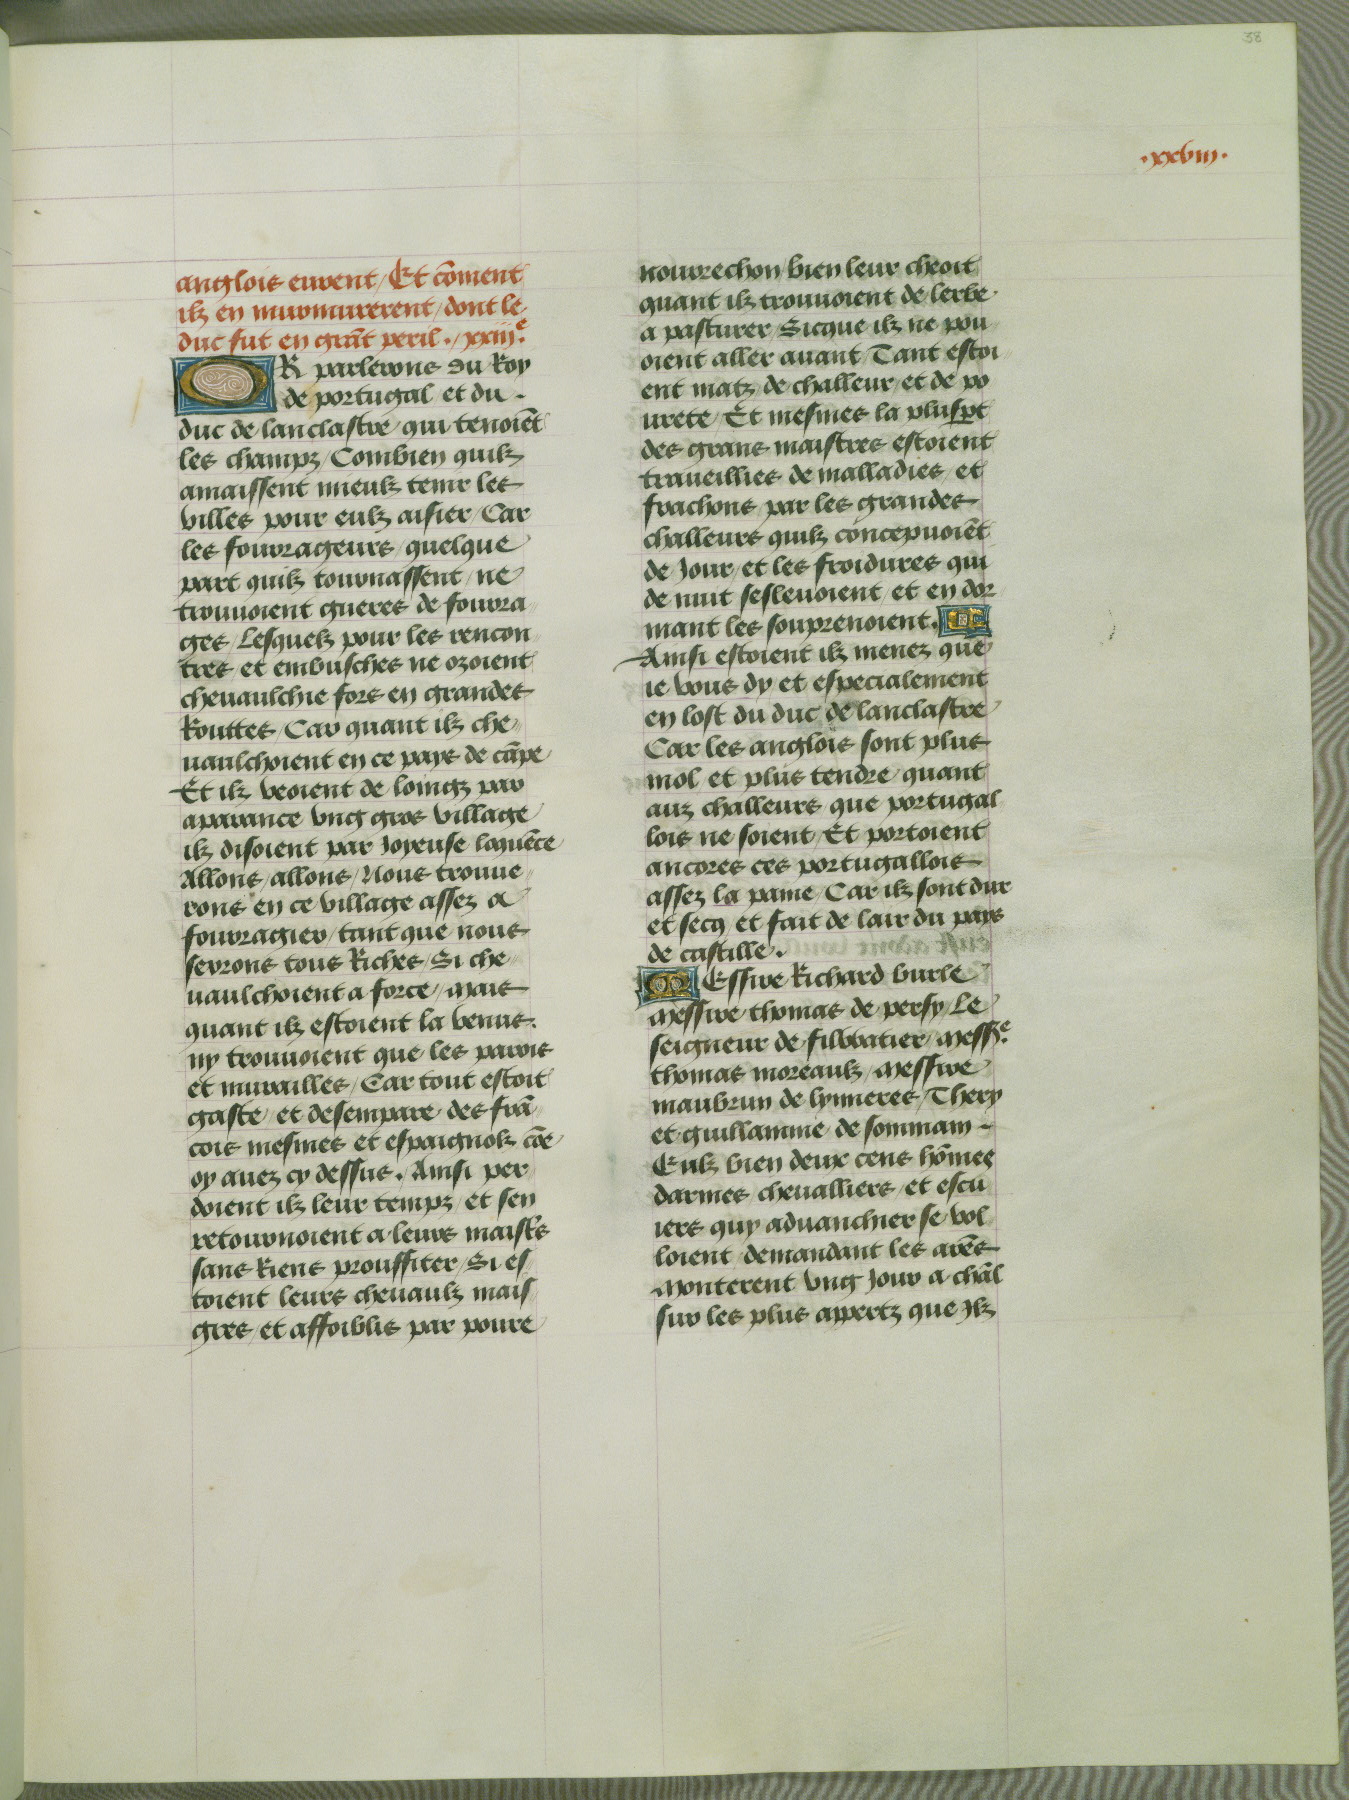 38
·xxviii·
anglois eurent / Et co̅ment
ilz en murmurerent / dont le
duc fut en gra̅t peril . / xxiiiᵉ.
OR parlerons du Roy
de portugal et du .
duc de lanclastre qui tenoie̅t
les champz / Combien quilz
amaissent mieulx tenir les
villes pour eulz aisier / Car
les fourrageurs / quelque
part quilz tournassent / ne
trouuoient gueres de fourra
ges / Lesquelz pour les rencon
tres et embusches ne ozoient
cheuaulchie fors en grandes
Routtes / Car quant ilz che„
uaulchoient en ce pays de ca̅pe
Et ilz veoient de loingz par
aparance vng gros village
ilz disoient par Joyeuse loque̅ce
Allons / allons / Nous trouue„
rons en ce village assez a
fourragier / tant que nous
serrons tous Riches / Si che„
uaulchoient a force / Mais
quant ilz estoient la venus.
ny trouuoient que les parois
et murailles / Car tout estoit
gaste / et desempare des fra̅„
cois mesmes et espaignolz co̅e
oy auez cy dessus . Ainsi per
doient ilz leur tempz / et sen
retournoient a leurs maist̅s
sans Riens prouffiter / Si es
toient leurs cheuaulz mais
gres / et affoiblis par poure
nourrechon bien leur cheoit
quant ilz trouuoient de lerbe .
a pasturer / Sicque ilz ne pou
oient aller auant / Tant estoi
ent matz de challeur / et de po
urete / Et mesmes la pluspt
des grans maistres estoient
traueillies de malladies / et
frachons par les grandes
challeurs quilz concepuoie̅t
de Jour / et les froidures qui
de nuit sesleuoient et en dor
mant les souprenoient .
Ainsi estoient ilz menez que
ie vous dy et especialement
en lost du duc de lanclastre
Car les anglois sont plus
mol et plus tendre / quant
aux challeurs que portugal
lois ne soient / Et portoient
ancores ces portugallois
assez la paine / Car ilz sont dur
et secq et fait de lair du pays
de castille .
MEssire Richard burle
Messire thomas de persy / Le
seigneur de filbbatier / Messʳᵉ.
thomas moreaulz / Messire
maubrun de lynieres / Thery
et guillamme de sommain -
Eulz bien deux cens ho̅mes
darmes cheualliers / et escu
iers quy aduanchier se vol
loient demandant les are̅s
Monterent vng Jour a cha̅l
sur les plus appertz que Ilz